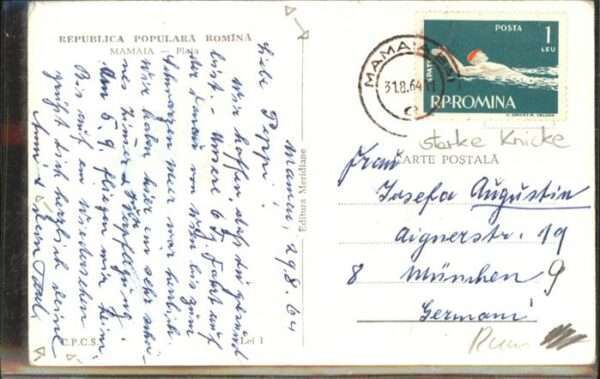 REPUBLICA POPULARĂ ROMÎNĂ
MAMAIA — Plaja
Mamaia, 29.8.64
Liebe Peppi!
Wir hoffen, daß du gesund
bist. Unsere 6 T. Fahrt auf
der Donau von Wien bis zum
Schwarzen Meer war herrlich.
Wir haben hier ein sehr schö-
nes Zimmer + Verpflegung.
Am 5.9. fliegen wir heim.
Bis auf ein Wiedersehen
grüßt dich herzlich deine
C.P.C.S.
Lei 1
Editura Meridiane
POSTA
1
LEU
SPATE
R.P.ROMINA
MAMAIA
31.8.64
starke Knicke
CARTE POȘTALĂ
Frau
Josefa Augustin
Aignerstr. 19
8 München 9
Germani